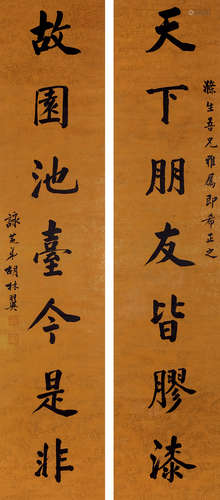 天下朋友皆膠漆
滌生尊兄雅屬即希正之
故園池臺今是非
詠芝弟胡林翼